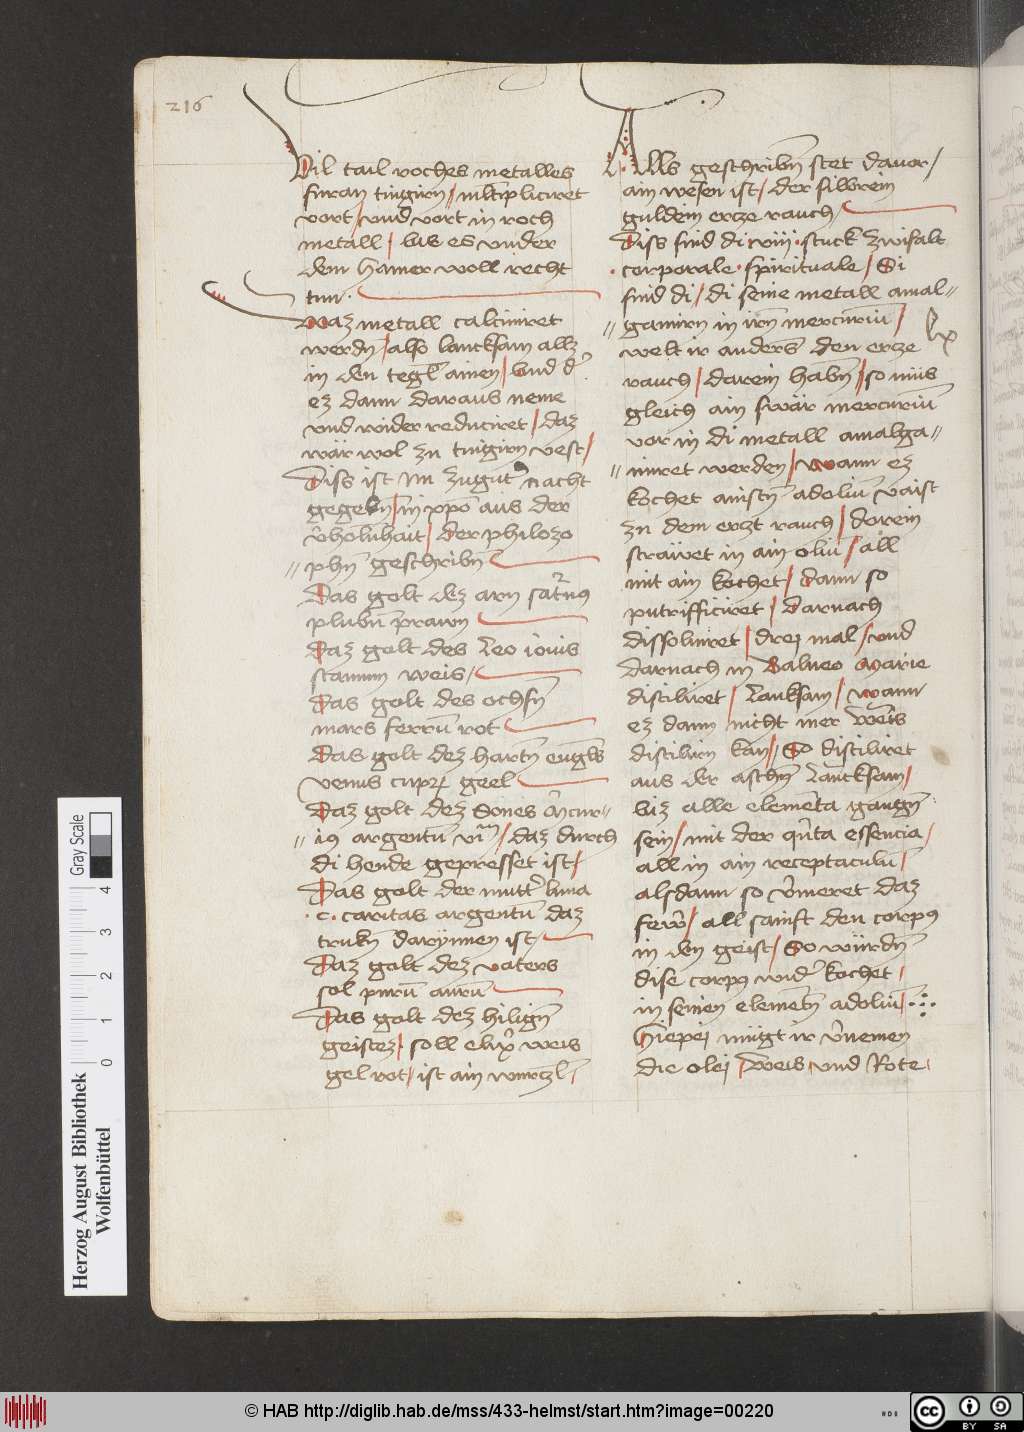 216
Vil tail roches metalles
furan tingirn / mltipliciret
vort / vnd vort in roch
metall / bis es vnder
dem hamer woll recht
tuu
Waz metall calciniret
werdn / also lancksam allz
in den tegl ainen / vnd
ez dann daraus neme
vnd wider reduciret / daz
wär wol zu tingirn vest /
Diss ist im zugut nacht
gegebn / in xpo aus der
der philozo
phn geschribn
Das golt dez arn satrnus
plubm prawn
Daz golt des Leo iovis
stannum weis /
Das golt des ochsn
mars ferru rot
Das golt dez hartn
venus geel
Daz golt dez Sones Mcur
ius argentu vium / daz durch
di hende gepresset ist /
Das golt der muttr luna
.c. caritas argentu daz
trukn darynnen ist /
Daz golt dez vaters
sol puru auru
Das golt dez hilign
geistez / soll elixr weis
gel rot / ist ain wurczl /
Alls geschribn stet davor /
ain wesen ist / der silbrein
guldein ercze rauch /
Diss sind di viij stuck zwifalt
corporale spirituale / Si
sind di / di seine metall amal
gamirn in irn mercuriu /
welt ir anders den ercze
rauch / darein habn / so mus
gleich ain swär mercuriu
vor in di metall amalga
miret werden / wann ez
kochet adoliu vaist
zu dem erczt rauch / darein
strawet in ain oliu / all
mit ain kochet / dann so
putrifficiret / darnach
dissolviret / drej mal / vnd
darnach in Balneo Marie
distiliret / lanksam / wann
ez dann nicht mer
distilirn kan / So distiliret
aus der aschn lancksam /
biz alle elementa gangn
sein / mit der qnta essencia /
all in ain receptaculu /
alsdann so vrmeret daz
fewr / all sainft den corpus
in den geist / So würdn
dise corpus widr kochet /
in seinen elementn adoliu /
Hiepej mügt ir vrnemen
die olej / weis vnd Rote /
Herzog August Bibliothek
Wolfenbüttel
Gray Scale
0 1 2 3 4
© HAB http://diglib.hab.de/mss/433-helmst/start.htm?image=00220
HAB
cc BY SA